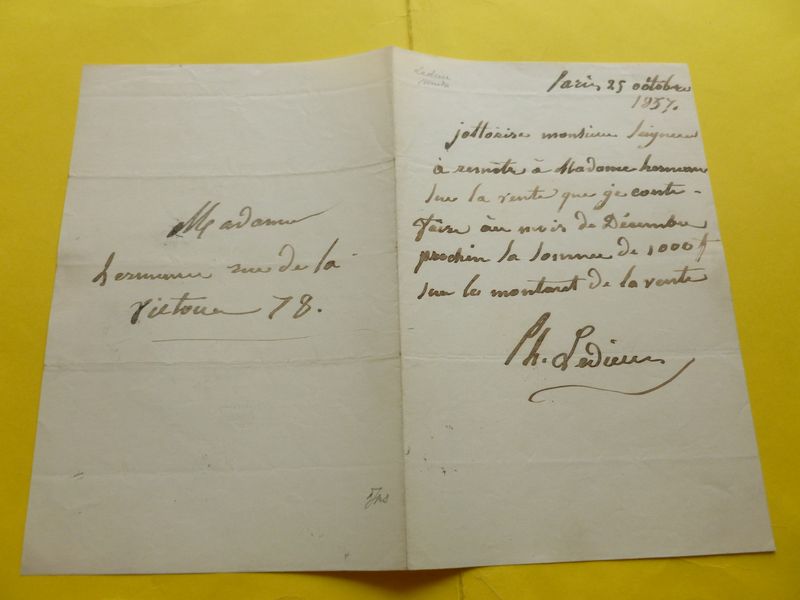 Madame
hermann rue de la
Victoire 78.
Ledieu
Paris 25 octobre
1857.
jottorise monsieur Seigneur
à remetre à Madame hermann
sur la vente que je conte
faire au mois de Décembre
prochin la somme de 1000 f
sur le montant de la vente
Ph. Ledieu